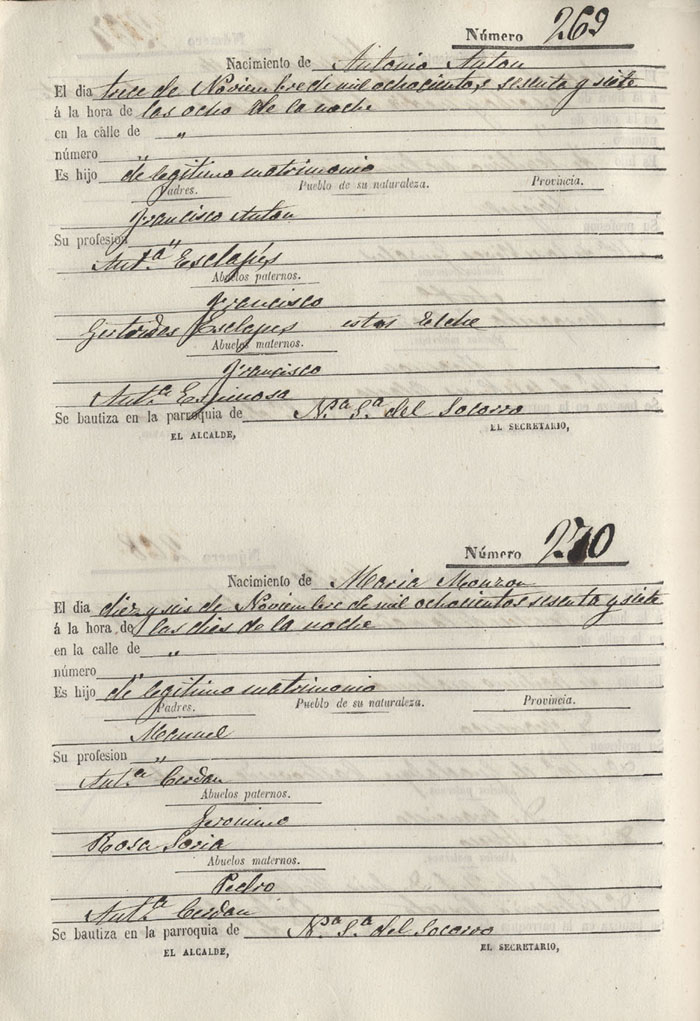 Número 269
Nacimiento de Antonio Anton
El dia trece de Noviembre de mil ochocientos sesenta y siete
á la hora de las ocho de la noche
en la calle de "
número "
Es hijo de legitimo matrimonio
Padres. Pueblo de su naturaleza. Provincia.
Francisco Anton
Su profesion "
Ant.ª Esclapés
Abuelos paternos.
Francisco
Esclapes estos Elche
Abuelos maternos.
Francisco
Ant.ª Espinosa
Se bautiza en la parroquia de N.ª S.ª del Socorro
EL ALCALDE, EL SECRETARIO,
Número 270
Nacimiento de Maria Monzon
El dia diez y seis de Noviembre de mil ochocientos sesenta y siete
á la hora de las dies de la noche
en la calle de "
número "
Es hijo de legitimo matrimonio
Padres. Pueblo de su naturaleza. Provincia.
Manuel
Su profesion "
Ant.ª Cerdan
Abuelos paternos.
Jeronimo
Rosa Soria
Abuelos maternos.
Pedro
Ant.ª Cerdan
Se bautiza en la parroquia de N.ª S.ª del Socorro
EL ALCALDE, EL SECRETARIO,